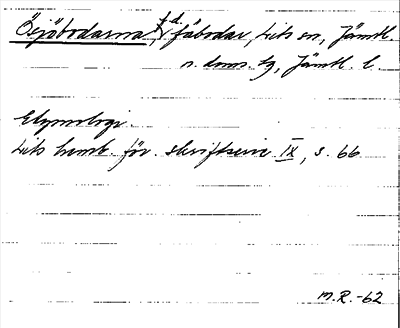 Ösjöbodarna, f.d. fäbodar, Lits sn, Jämtl.
n. doms. tg, Jämtl. l.
Etymologi.
Lits hemb. för. skriftserie IX, s. 66
M.R.-62